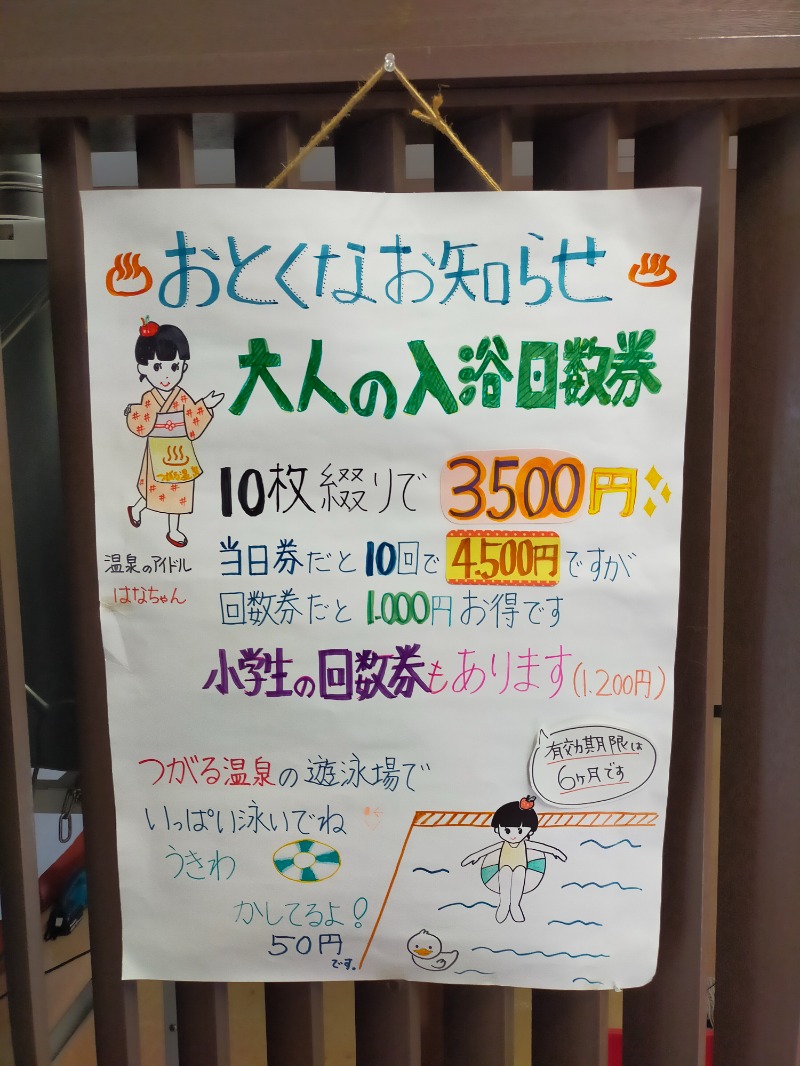 おとくなお知らせ
大人の入浴回数券
10枚綴りで3500円
つがる温泉
温泉のアイドル
はなちゃん
当日券だと10回で4.500円ですが
回数券だと1.000円お得です
小学生の回数券もあります(1.200円)
有効期限は
6ヶ月です
つがる温泉の遊泳場で
いっぱい泳いでね
うきわ
かしてるよ!
50円
です。